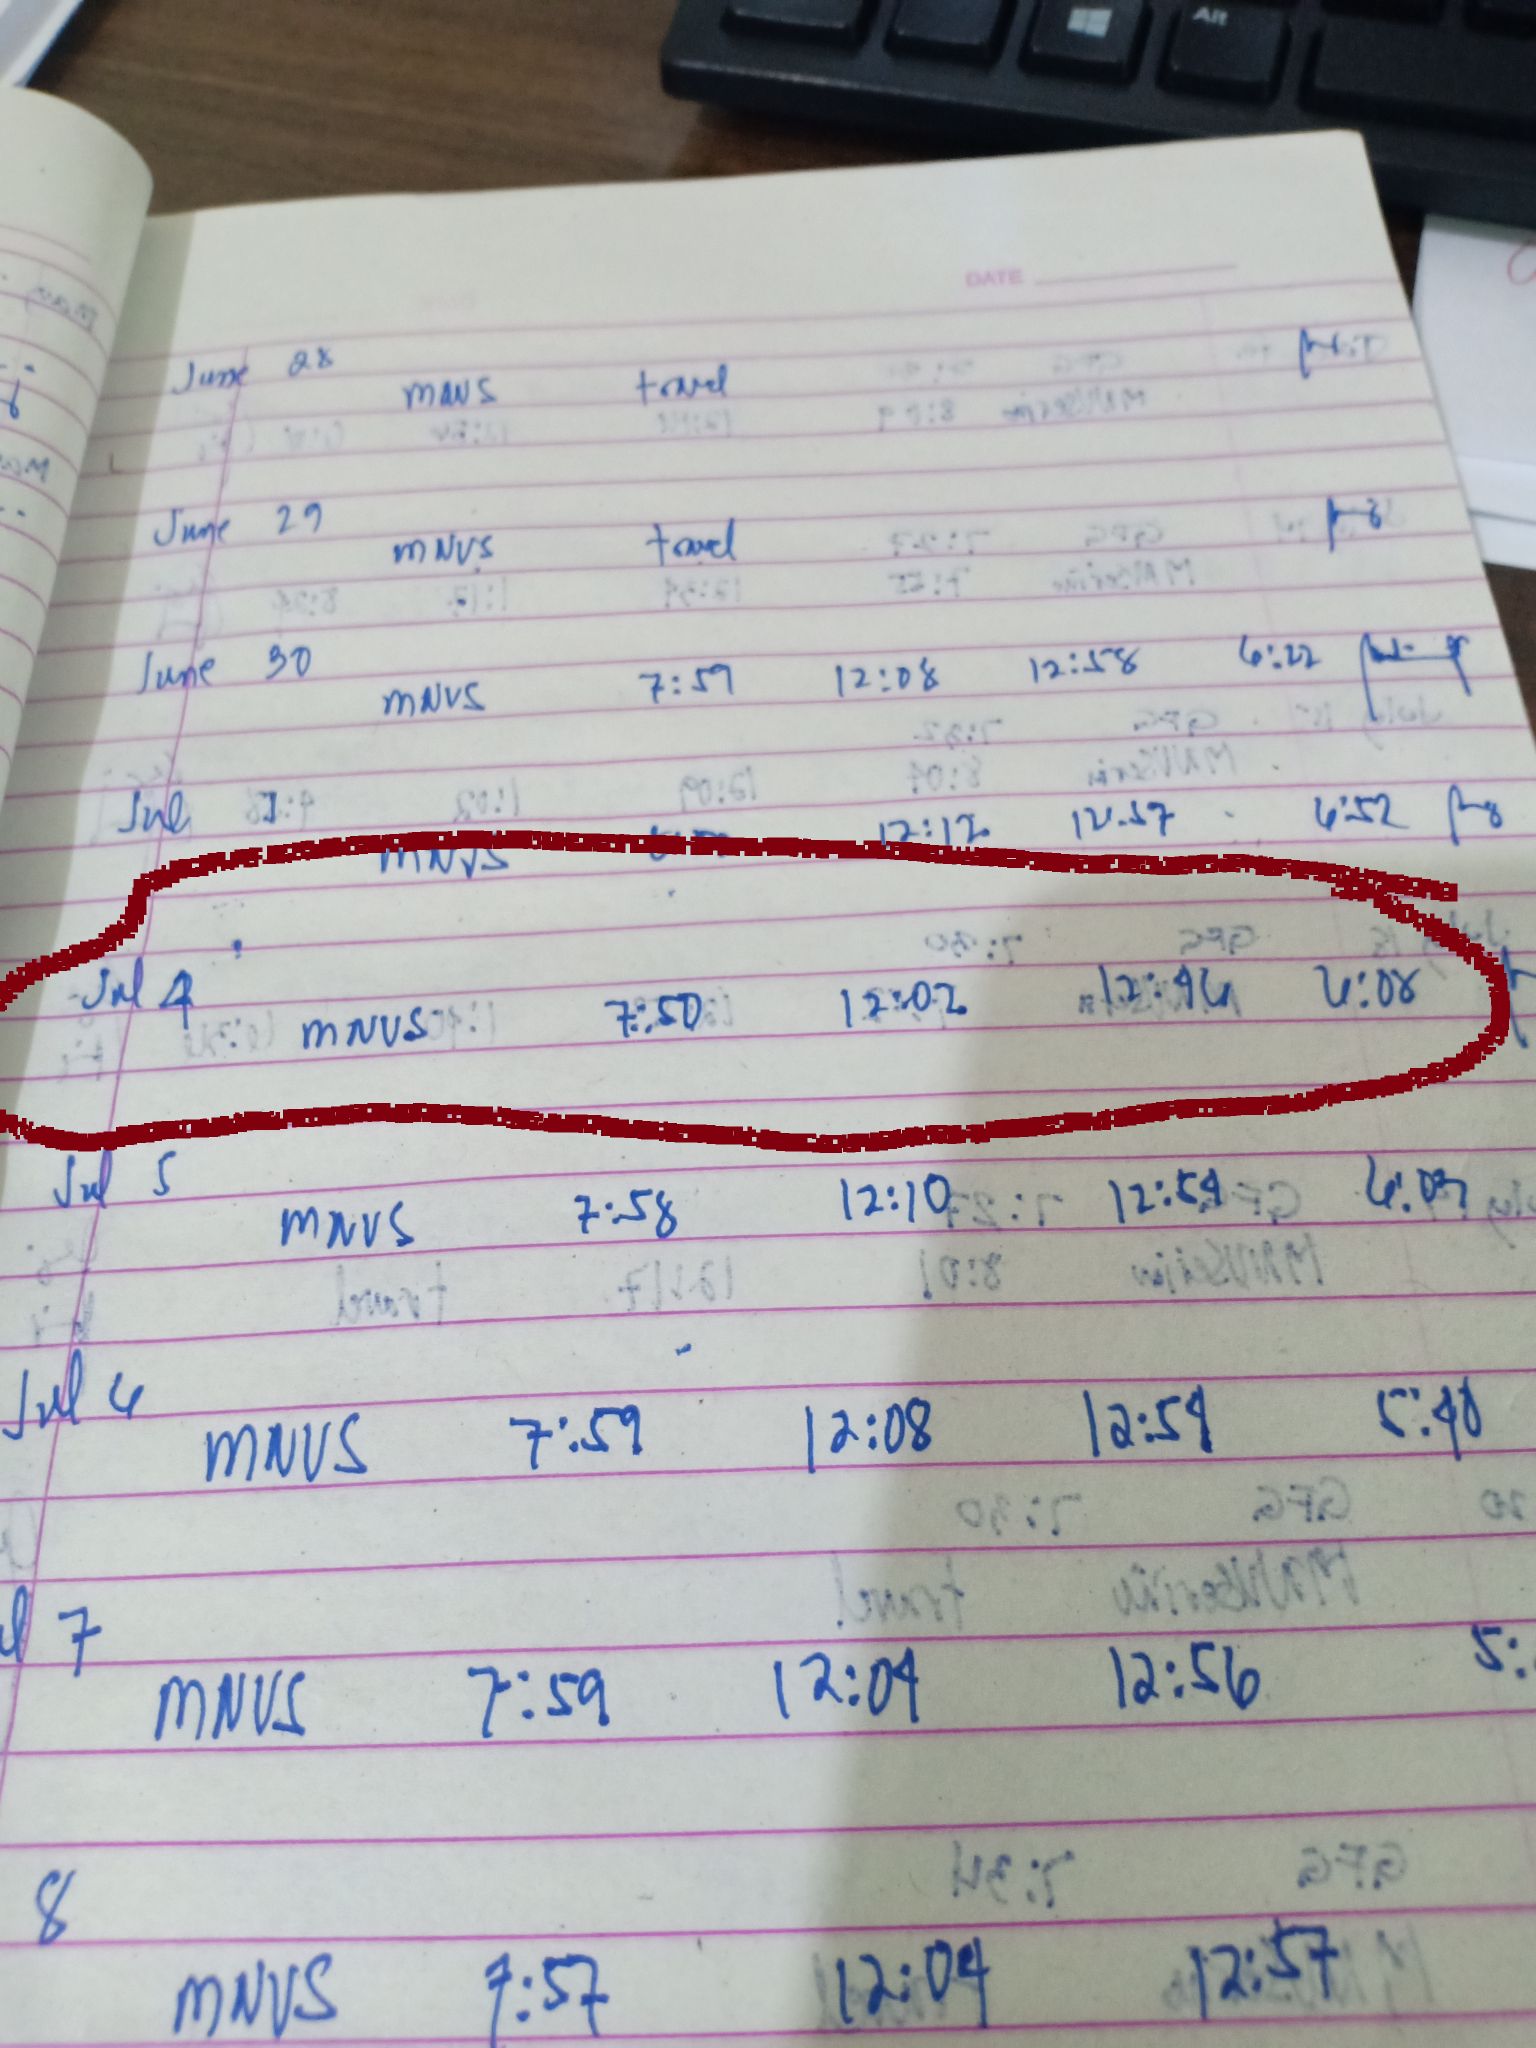 Alt
DATE
June 28
MNVS travel
June 29
MNVS travel
June 30
MNVS 7:59 12:08 12:58 6:22
Jul 1
MNVS 12:12 12:57 6:52
Jul 4
MNVS 7:50 12:02 12:46 6:08
Jul 5
MNVS 7:58 12:10 12:54 6:03
Jul 6
MNVS 7:59 12:08 12:54 5:40
7
MNVS 7:59 12:04 12:56 5:
8
MNVS 7:57 12:04 12:57